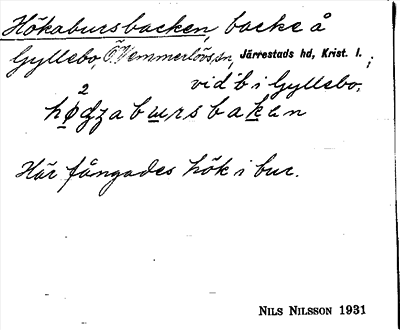 Hökabursbacken, backe å
Gyllebo, Ö. Vemmerlövs sn, Järrestads hd, Krist. l. ;
vid b i Gyllebo.
2
Här fångades hök i bur.
NILS NILSSON 1931